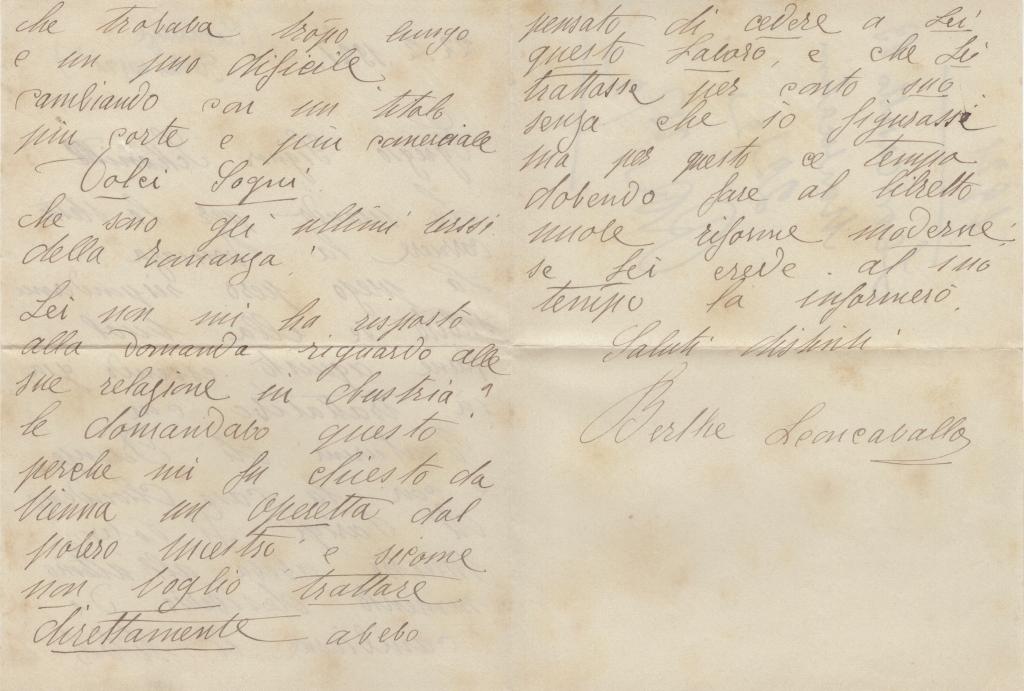 che trovava tropo lungo
e un puo dificile
cambiando con un titolo
piu corte e piu comerciale
Dolci Sogni
che sono gli ultimi versi
della romanza.
Lei non mi ha risposto
alla domanda riguardo alle
sue relazione in Austria?
le domandavo questo
perche mi fu chiesto da
Vienna un Operetta dal
povero maestro e sicome
non voglio trattare
direttamente avevo
pensato di cedere a Lei
questo lavoro, e che Lei
trattasse per conto suo
senza che io figurassi
ma per questo ce tempo
dobendo fare al libretto
nuole riforme moderne;
se Lei crede. al suo
tempo la informerò.
Saluti distinti
Berthe Leoncavallo